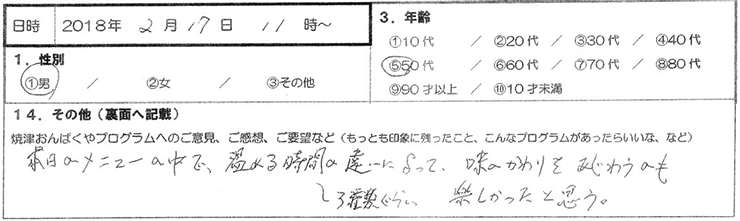 日時 2018年 2月17日 11時～
1．性別
①男 / ②女 / ③その他
3．年齢
①10代 / ②20代 / ③30代 / ④40代
⑤50代 / ⑥60代 / ⑦70代 / ⑧80代
⑨90才以上 / ⑩10才未満
14．その他（裏面へ記載）
焼津おんぱくやプログラムへのご意見、ご感想、ご要望など（もっとも印象に残ったこと、こんなプログラムがあったらいいな、など）
本日のメニューの中で、温める時間の違いによって、味のかわりをあじわうのも
3種類ぐらい 楽しかったと思う。